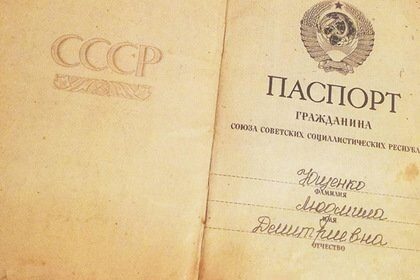 СССР
ПАСПОРТ
ГРАЖДАНИНА
СОЮЗА СОВЕТСКИХ СОЦИАЛИСТИЧЕСКИХ РЕСПУБ
Ющенко
ФАМИЛИЯ
Людмила
ИМЯ
Дмитриевна
ОТЧЕСТВО